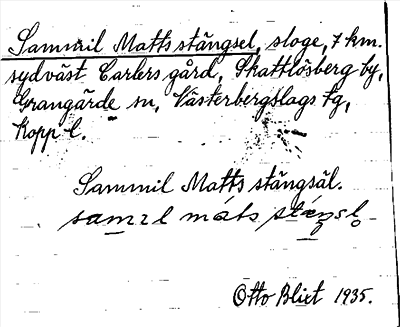 Sammil Matts stängsel, sloge, 7 km.
sydväst Carlers gård, Skattlösberg by,
Grangärde sn, Västerbergslags fg,
Kopp l.
Sammil Matts stängsäl.
samɪl máts stáŋsl̥
Otto Blixt 1935.